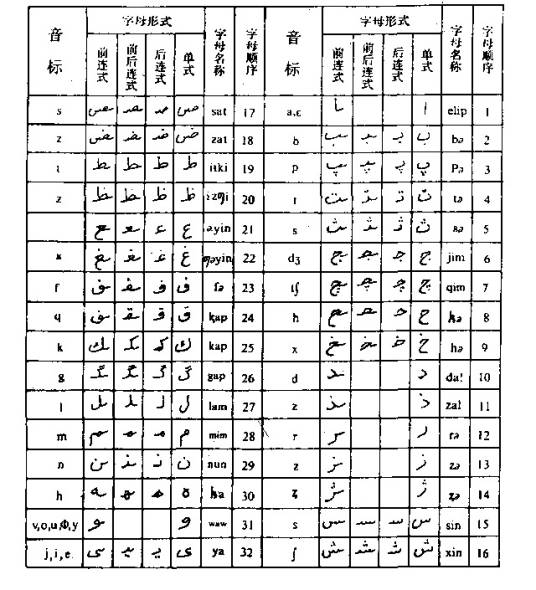 字母形式 字母形式
音标 前连式 前后连式 后连式 单式 字母名称 字母顺序 音标 前连式 前后连式 后连式 单式 字母名称 字母顺序
s ـص ـصـ صـ ص sat 17 a,ɛ ـا ا elip 1
z ـض ـضـ ضـ ض zat 18 b ـب ـبـ بـ ب bə 2
t ـط ـطـ طـ ط itki 19 p ـپ ـپـ پـ پ pə 3
z ـظ ـظـ ظـ ظ 20 t ـت ـتـ تـ ت tə 4
ـع ـعـ عـ ع əyin 21 s ـث ـثـ ثـ ث sə 5
ـغ ـغـ غـ غ ƣəyin 22 dʒ ـج ـجـ جـ ج jim 6
f ـف ـفـ فـ ف fə 23 tʃ ـچ ـچـ چـ چ qim 7
q ـق ـقـ قـ ق ⱪap 24 h ـح ـحـ حـ ح ⱨə 8
k ـك ـكـ كـ ك kap 25 x ـخ ـخـ خـ خ hə 9
g ـگ ـگـ گـ گ gap 26 d ـد د dal 10
l ـل ـلـ لـ ل lam 27 z ـذ ذ zal 11
m ـم ـمـ مـ م mim 28 r ـر ر rə 12
n ـن ـنـ نـ ن nun 29 z ـز ز zə 13
h ـه ـهـ هـ ه ⱨa 30 ʒ ـژ ژ ⱬə 14
v,o,u,Φ,y ـو و waw 31 s ـس ـسـ سـ س sin 15
j,i,e ـى ـيـ يـ ى ya 32 ʃ ـش ـشـ شـ ش xin 16